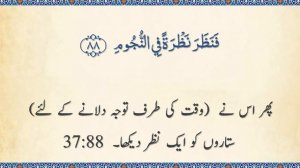 فَنَظَرَ نَظْرَةً فِي النُّجُومِ ﴿٨٨﴾
پھر اس نے (وقت کی طرف توجہ دلانے کے لئے)
ستاروں کو ایک نظر دیکھا۔ 37:88